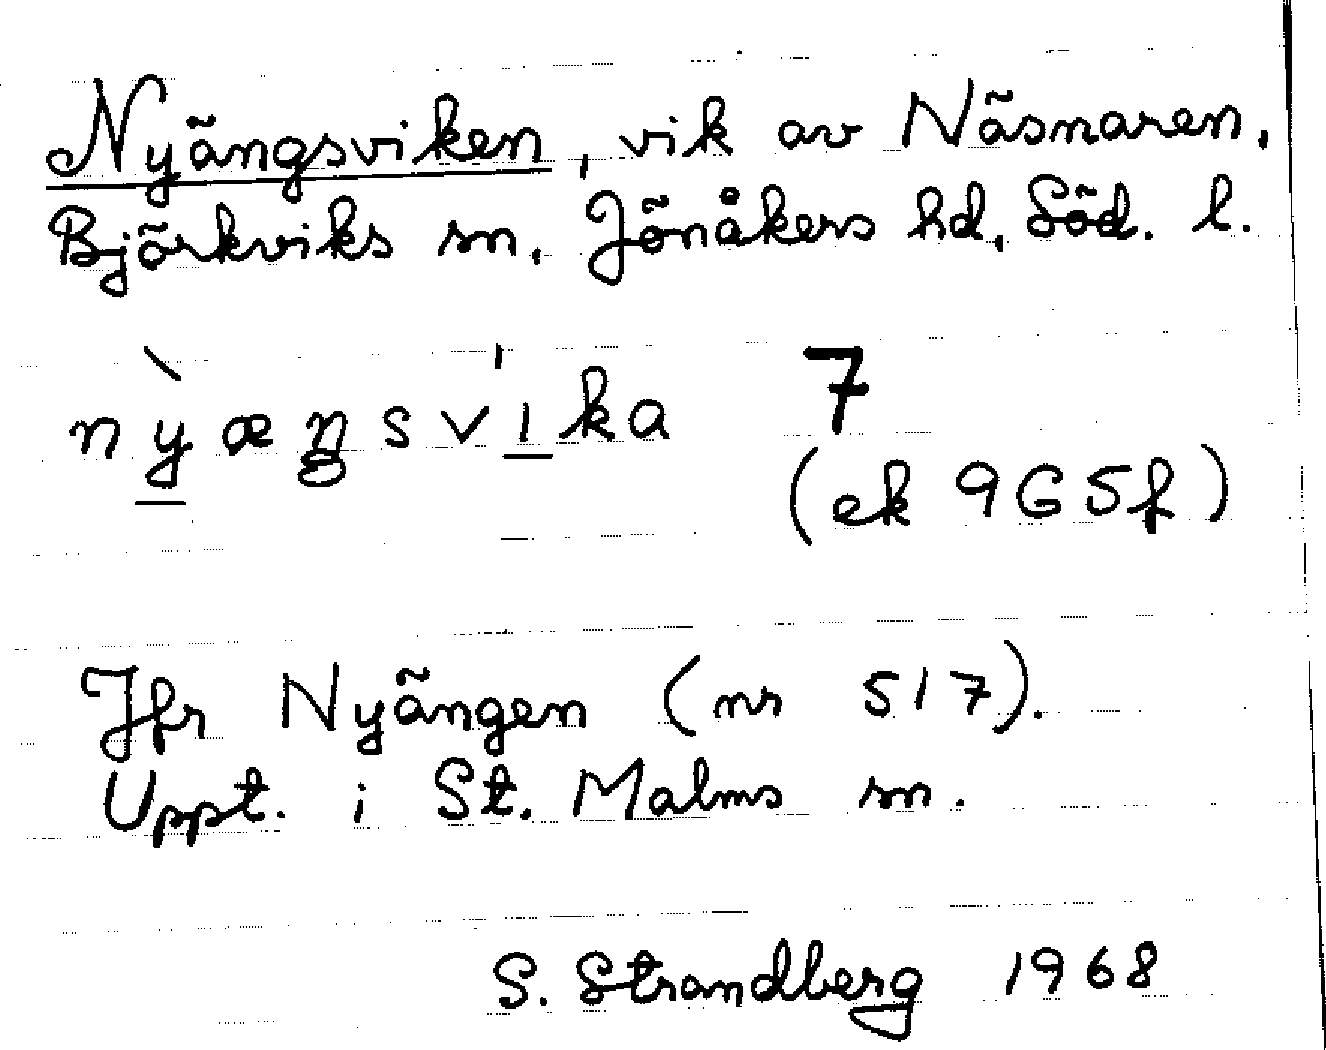 Nyängsviken, vik av Näsnaren,
Björkviks sn, Jönåkers hd, Söd. l.
nỳæŋsvika 7
(ek 9G5f)
Jfr Nyängen (nr 517).
Uppt. i St. Malms sn.
S. Strandberg 1968